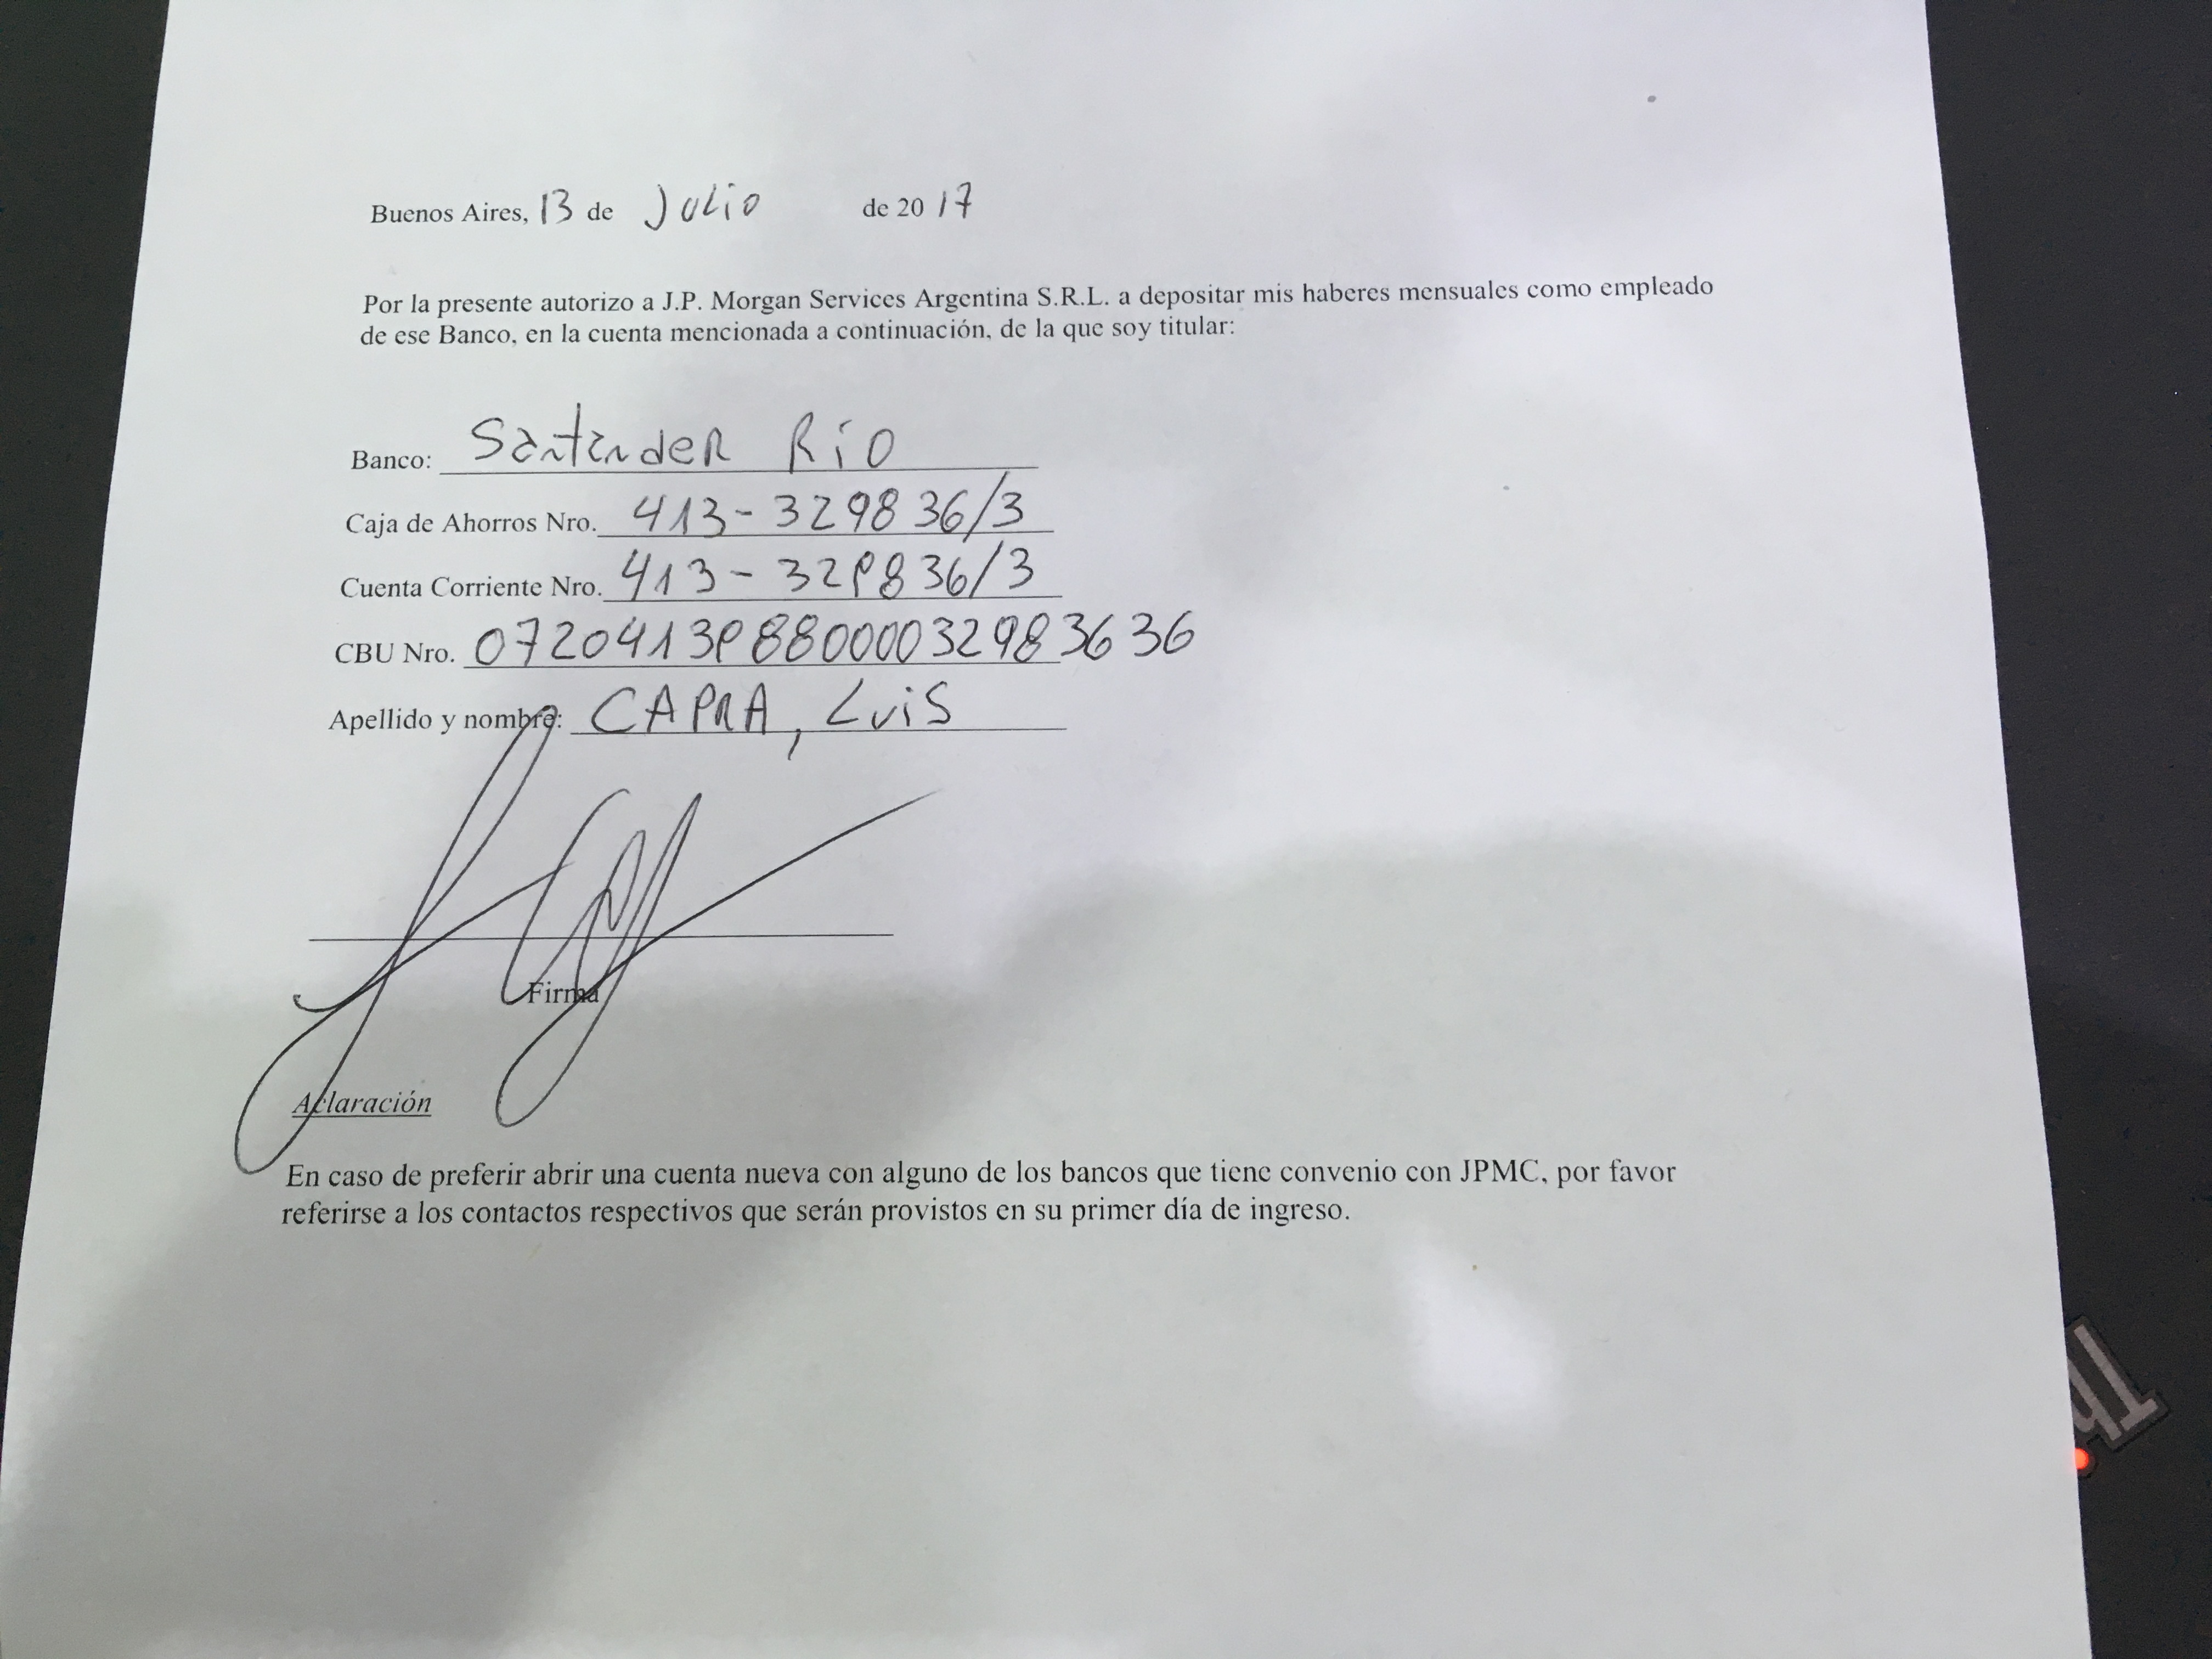 Buenos Aires, 13 de Julio de 2017
Por la presente autorizo a J.P. Morgan Services Argentina S.R.L. a depositar mis haberes mensuales como empleado
de ese Banco, en la cuenta mencionada a continuación, de la que soy titular:
Banco: Santander Río
Caja de Ahorros Nro. 413-329836/3
Cuenta Corriente Nro. 413-329836/3
CBU Nro. 0720413988000032983636
Apellido y nombre: CAPRA, Luis
Firma
Aclaración
En caso de preferir abrir una cuenta nueva con alguno de los bancos que tiene convenio con JPMC, por favor
referirse a los contactos respectivos que serán provistos en su primer día de ingreso.